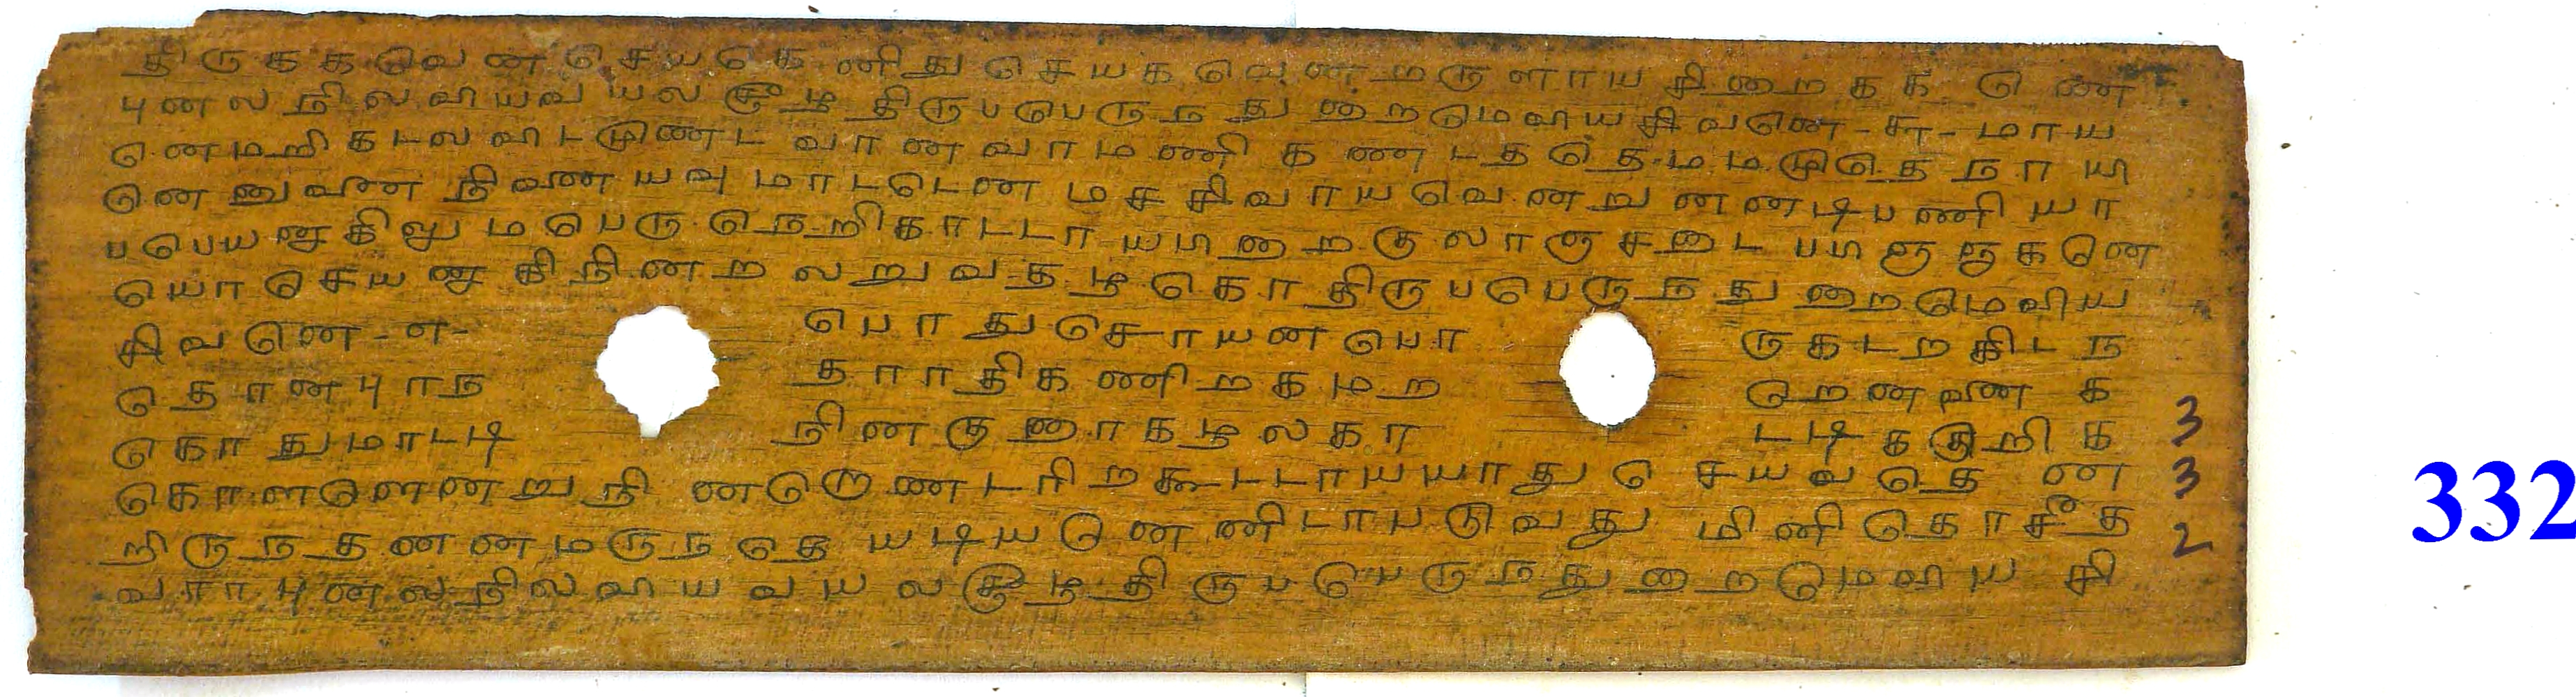 திருககவென செயகெனிது செயகவெனறருளாய சிறைகக ணெ
புனல நிலவியவயலசூழ திருபபெருநதுறைமெவிய சிவனெ - ௬ - மாய
னெமறிகடலவிடமுணட வானவாமணி கணடததெமமமுதெ நாயி
னெனுனை நினையவு மாடடென மசசிவாயவெனறுனனடிபணியா
பபெயனாகிலுமபெருநெறிகாடடாயபிறைகுலாஞசடை பபிஞஞகனெ
யொசெயனாகிநினறலறுவதழகொதிருபபெருநதுறைமெவிய
சிவனெ - எ - பொதுசெரயன பொருகடறகிடந
தொனபுரந தராதிகணிறகமற றெனைக
கொதுமாடடி நினகுரைகழலகா டடிககுறிக
கொளளெனறுநி னறொணடரிறகூடடாயயாதுசெயவதெ ன
றிருநதனனமருநதெ யடியனெனிடாபடுவதுமினிதொசீத
வராபுனலநிலவியவயலசூழதிருபபெருநதுறைமெவியசி
3
3
2
332